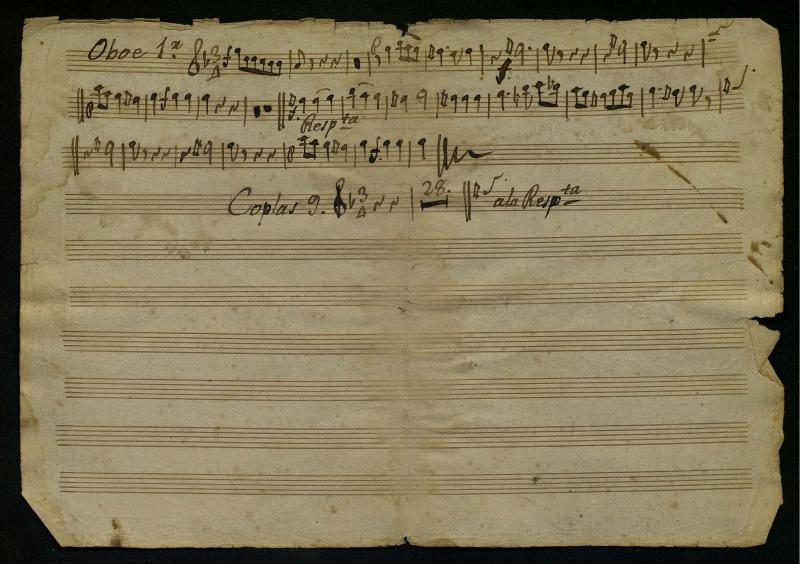 Oboe 1.ª 3 4
Resp.ta
Coplas 9. 3 4 28. a la Resp.ta